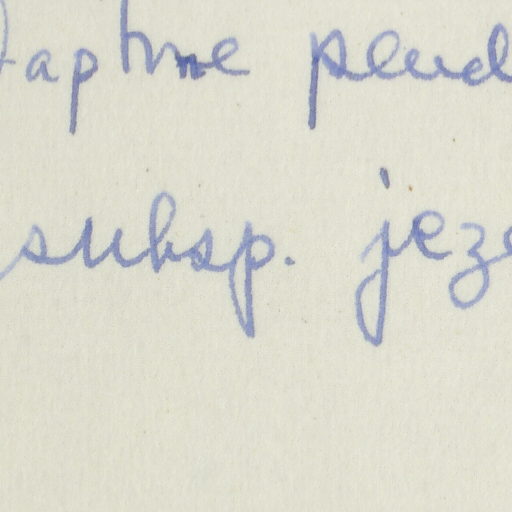 Daphne pseud
subsp. jeze